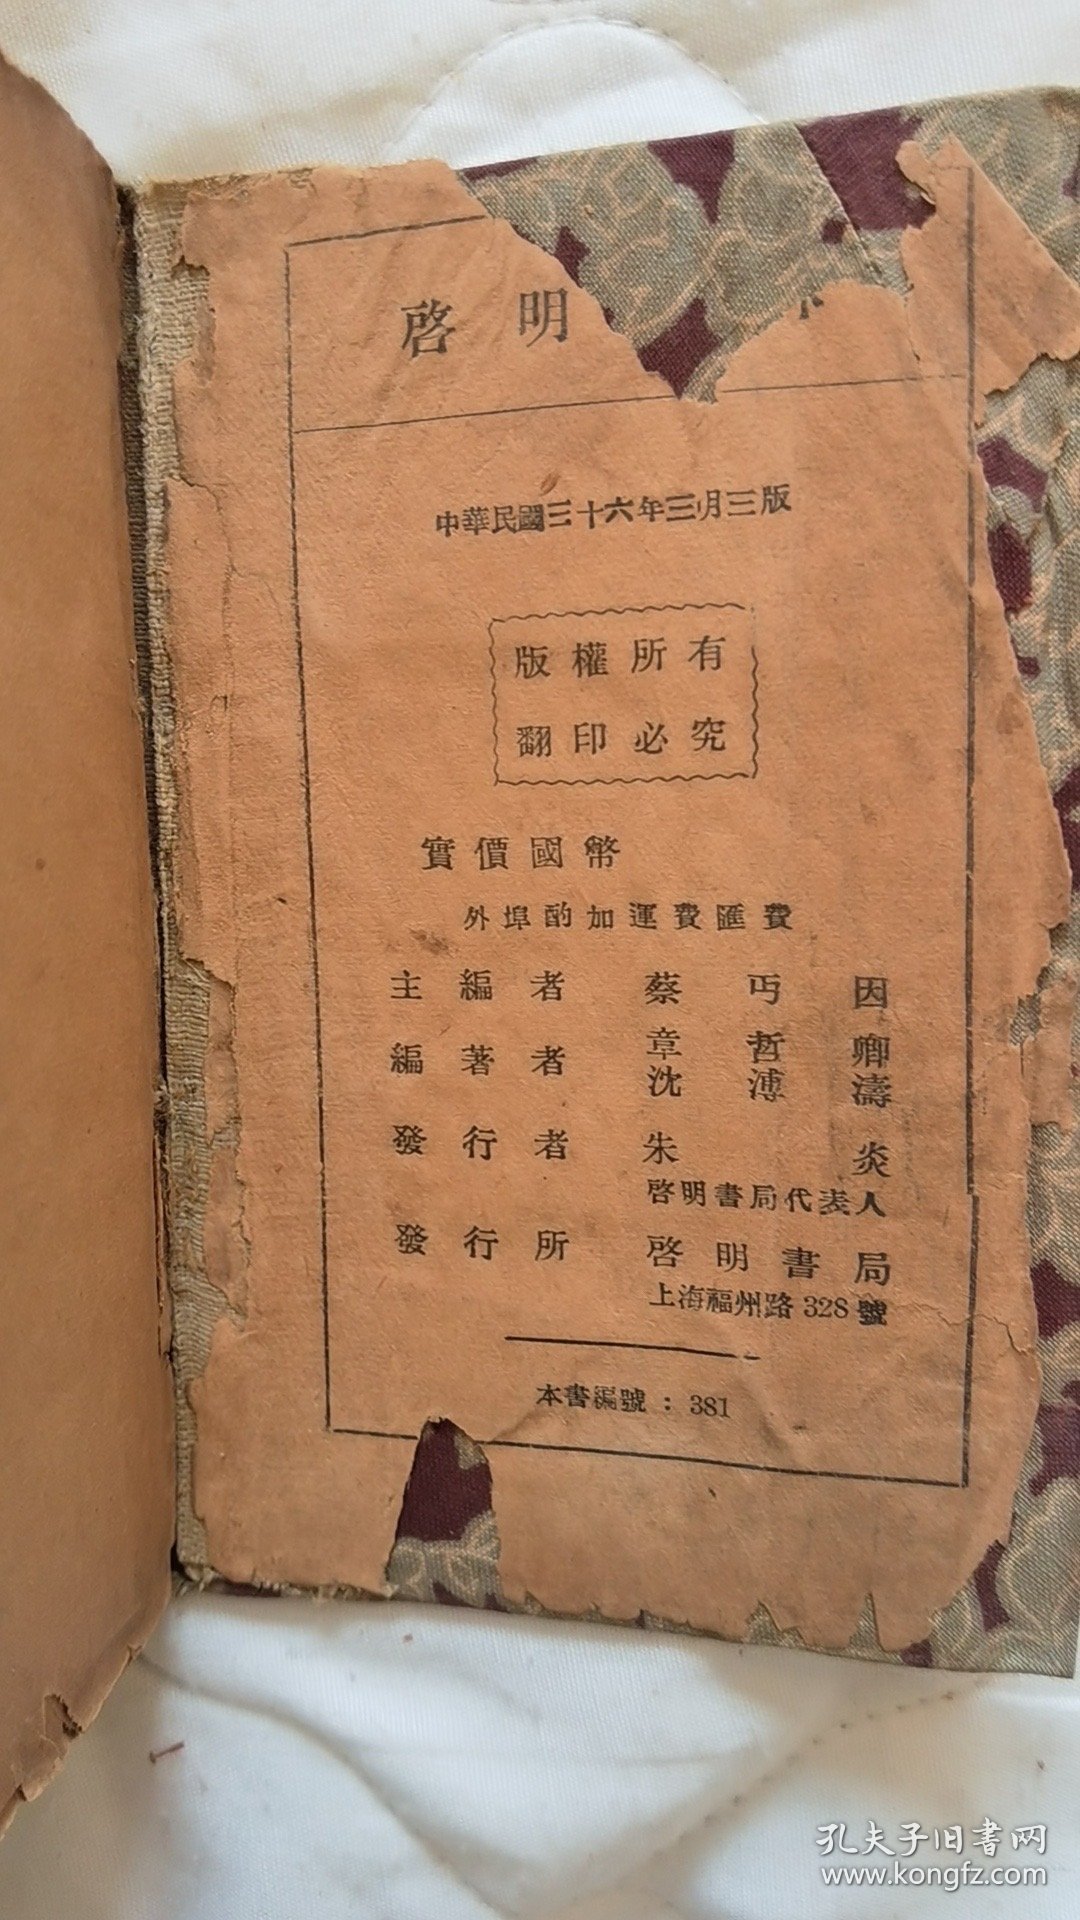 啓明
中華民國三十六年三月三版
版權所有
翻印必究
實價國幣
外埠酌加運費匯費
主編者 蔡丏因
編著者 章哲卿
沈溥濤
發行者 朱炎
啓明書局代表人
發行所 啓明書局
上海福州路328號
本書編號：381
孔夫子旧書网
www.kongfz.com